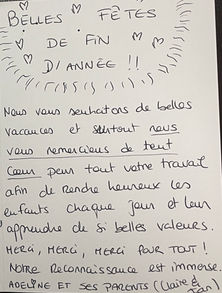 BELLES FÊTES
DE FIN
D'ANNÉE !!
Nous vous souhaitons de belles
vacances et surtout nous
vous remercions de tout
Cœur pour tout votre travail
afin de rendre heureux les
enfants chaque jour et leur
apprendre de si belles valeurs.
MERCI, MERCI, MERCI POUR TOUT !
Notre Reconnaissance est immense.
ADELINE ET SES PARENTS (Claire &